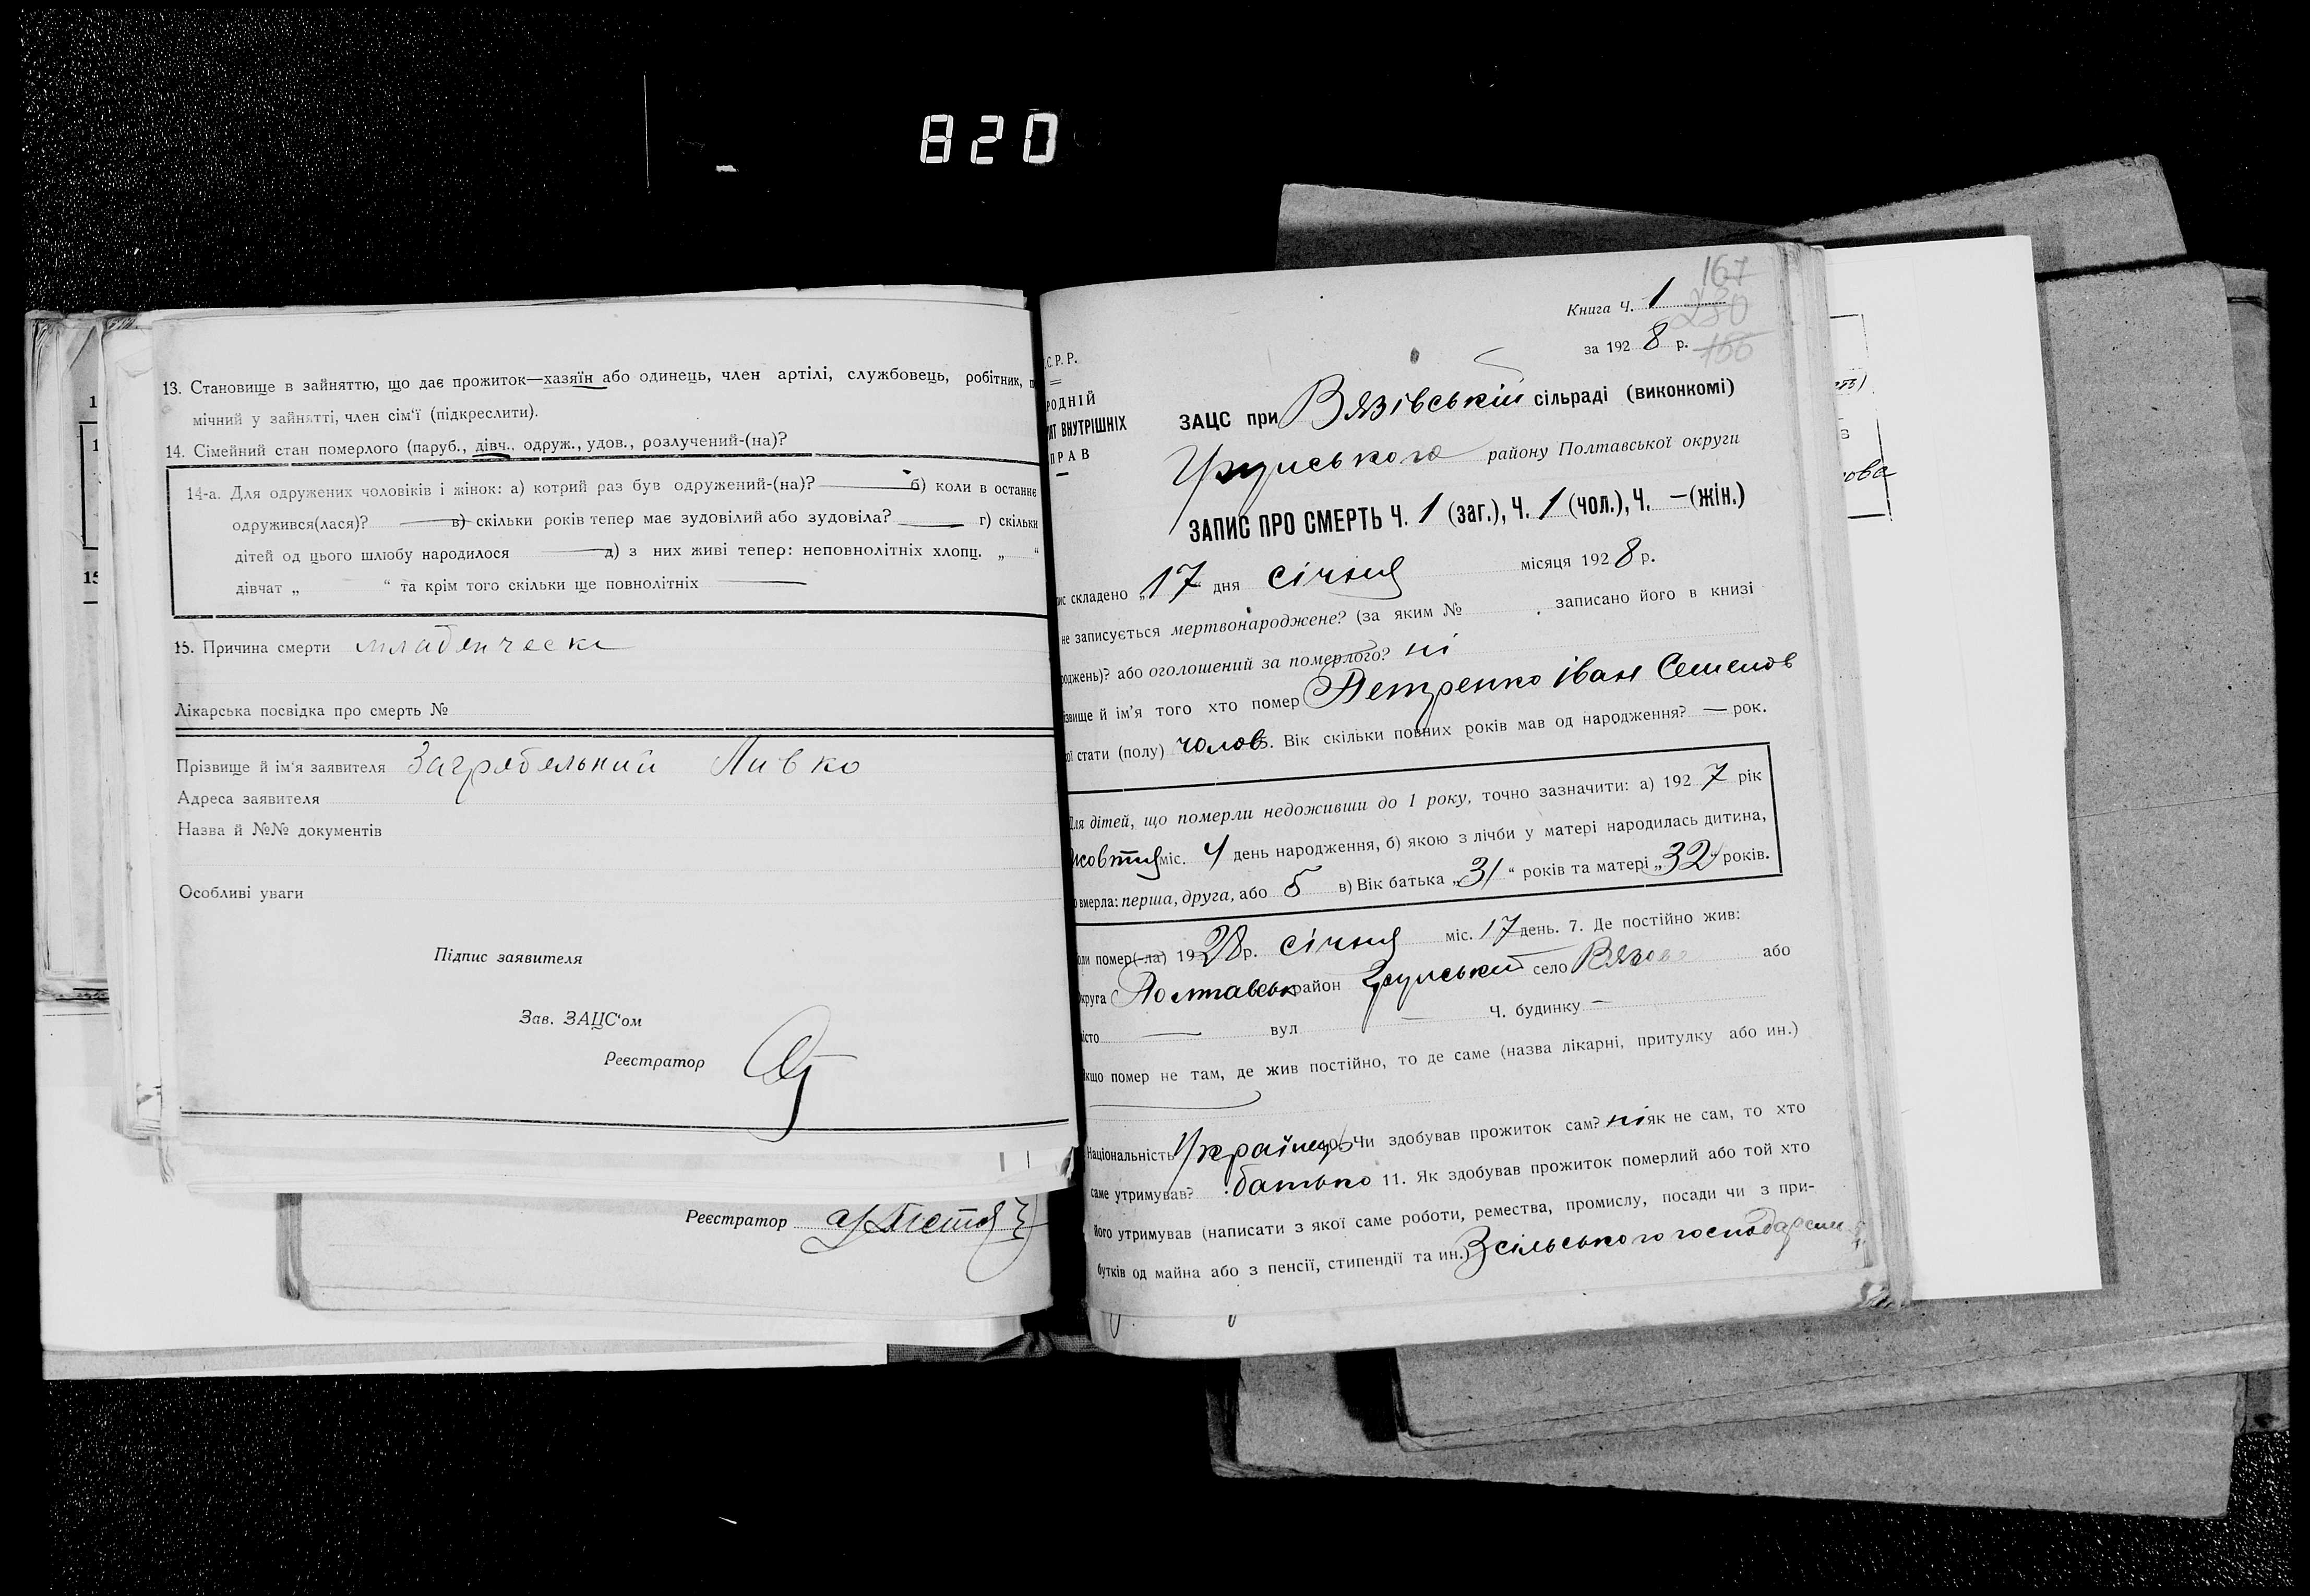 820
13. Становище в зайняттю, що дає прожиток—хазяїн або одинець, член артілі, службовець, робітник, п
мічний у зайнятті, член сім'ї (підкреслити).
14. Сімейний стан померлого (паруб., дівч., одруж., удов., розлучений-(на)?
14-а. Для одружених чоловіків і жінок: а) котрий раз був одружений-(на)? б) коли в останнє
одружився(лася)? в) скільки років тепер має зудовілий або зудовіла? г) скільки
дітей од цього шлюбу народилося д) з них живі тепер: неповнолітніх хлопц. „ “
дівчат „ “ та крім того скільки ще повнолітніх
15. Причина смерти младенческа
Лікарська посвідка про смерть №
Прізвище й ім'я заявителя Загребельний Левко
Адреса заявителя
Назва й №№ документів
Особливі уваги
Підпис заявителя
Зав. ЗАЦС'ом
Реєстратор
Реєстратор
167
Книга Ч. 1
230
за 1928 р.
166
.С.Р.Р.
РОДНІЙ
ІЯТ ВНУТРІШНІХ
ПРАВ
ЗАЦС при Вязівській сільраді (виконкомі)
Грунського району Полтавської округи
ЗАПИС ПРО СМЕРТЬ Ч. 1 (заг.), Ч. 1 (чол.), Ч. — (жін.)
ис складено „17 дня січня місяця 1928 р.
не записується мертвонароджене? (за яким № записано його в книзі
роджень)? або оголошений за померлого? ні
ізвище й ім'я того хто помер Петренко Іван Семенов
ої стати (полу) чолов. Вік скільки повних років мав од народження? — рок.
Для дітей, що померли недоживши до 1 року, точно зазначити: а) 1927 рік
жовтня міс. 4 день народження, б) якою з лічби у матері народилась дитина,
о вмерла: перша, друга, або 5 в) Вік батька „31“ років та матері „32“ років.
оли помер(-ла) 1928 р. січня міс. 17 день. 7. Де постійно жив:
круга Полтавськ район Грунський село Вязове або
істо — вул — Ч. будинку —
якщо помер не там, де жив постійно, то де саме (назва лікарні, притулку або ин.)
Національність Українець Чи здобував прожиток сам? ні як не сам, то хто
саме утримував? батько 11. Як здобував прожиток померлий або той хто
його утримував (написати з якої саме роботи, ремества, промислу, посади чи з при-
бутків од майна або з пенсії, стипендії та ин.) З сільського господарсив